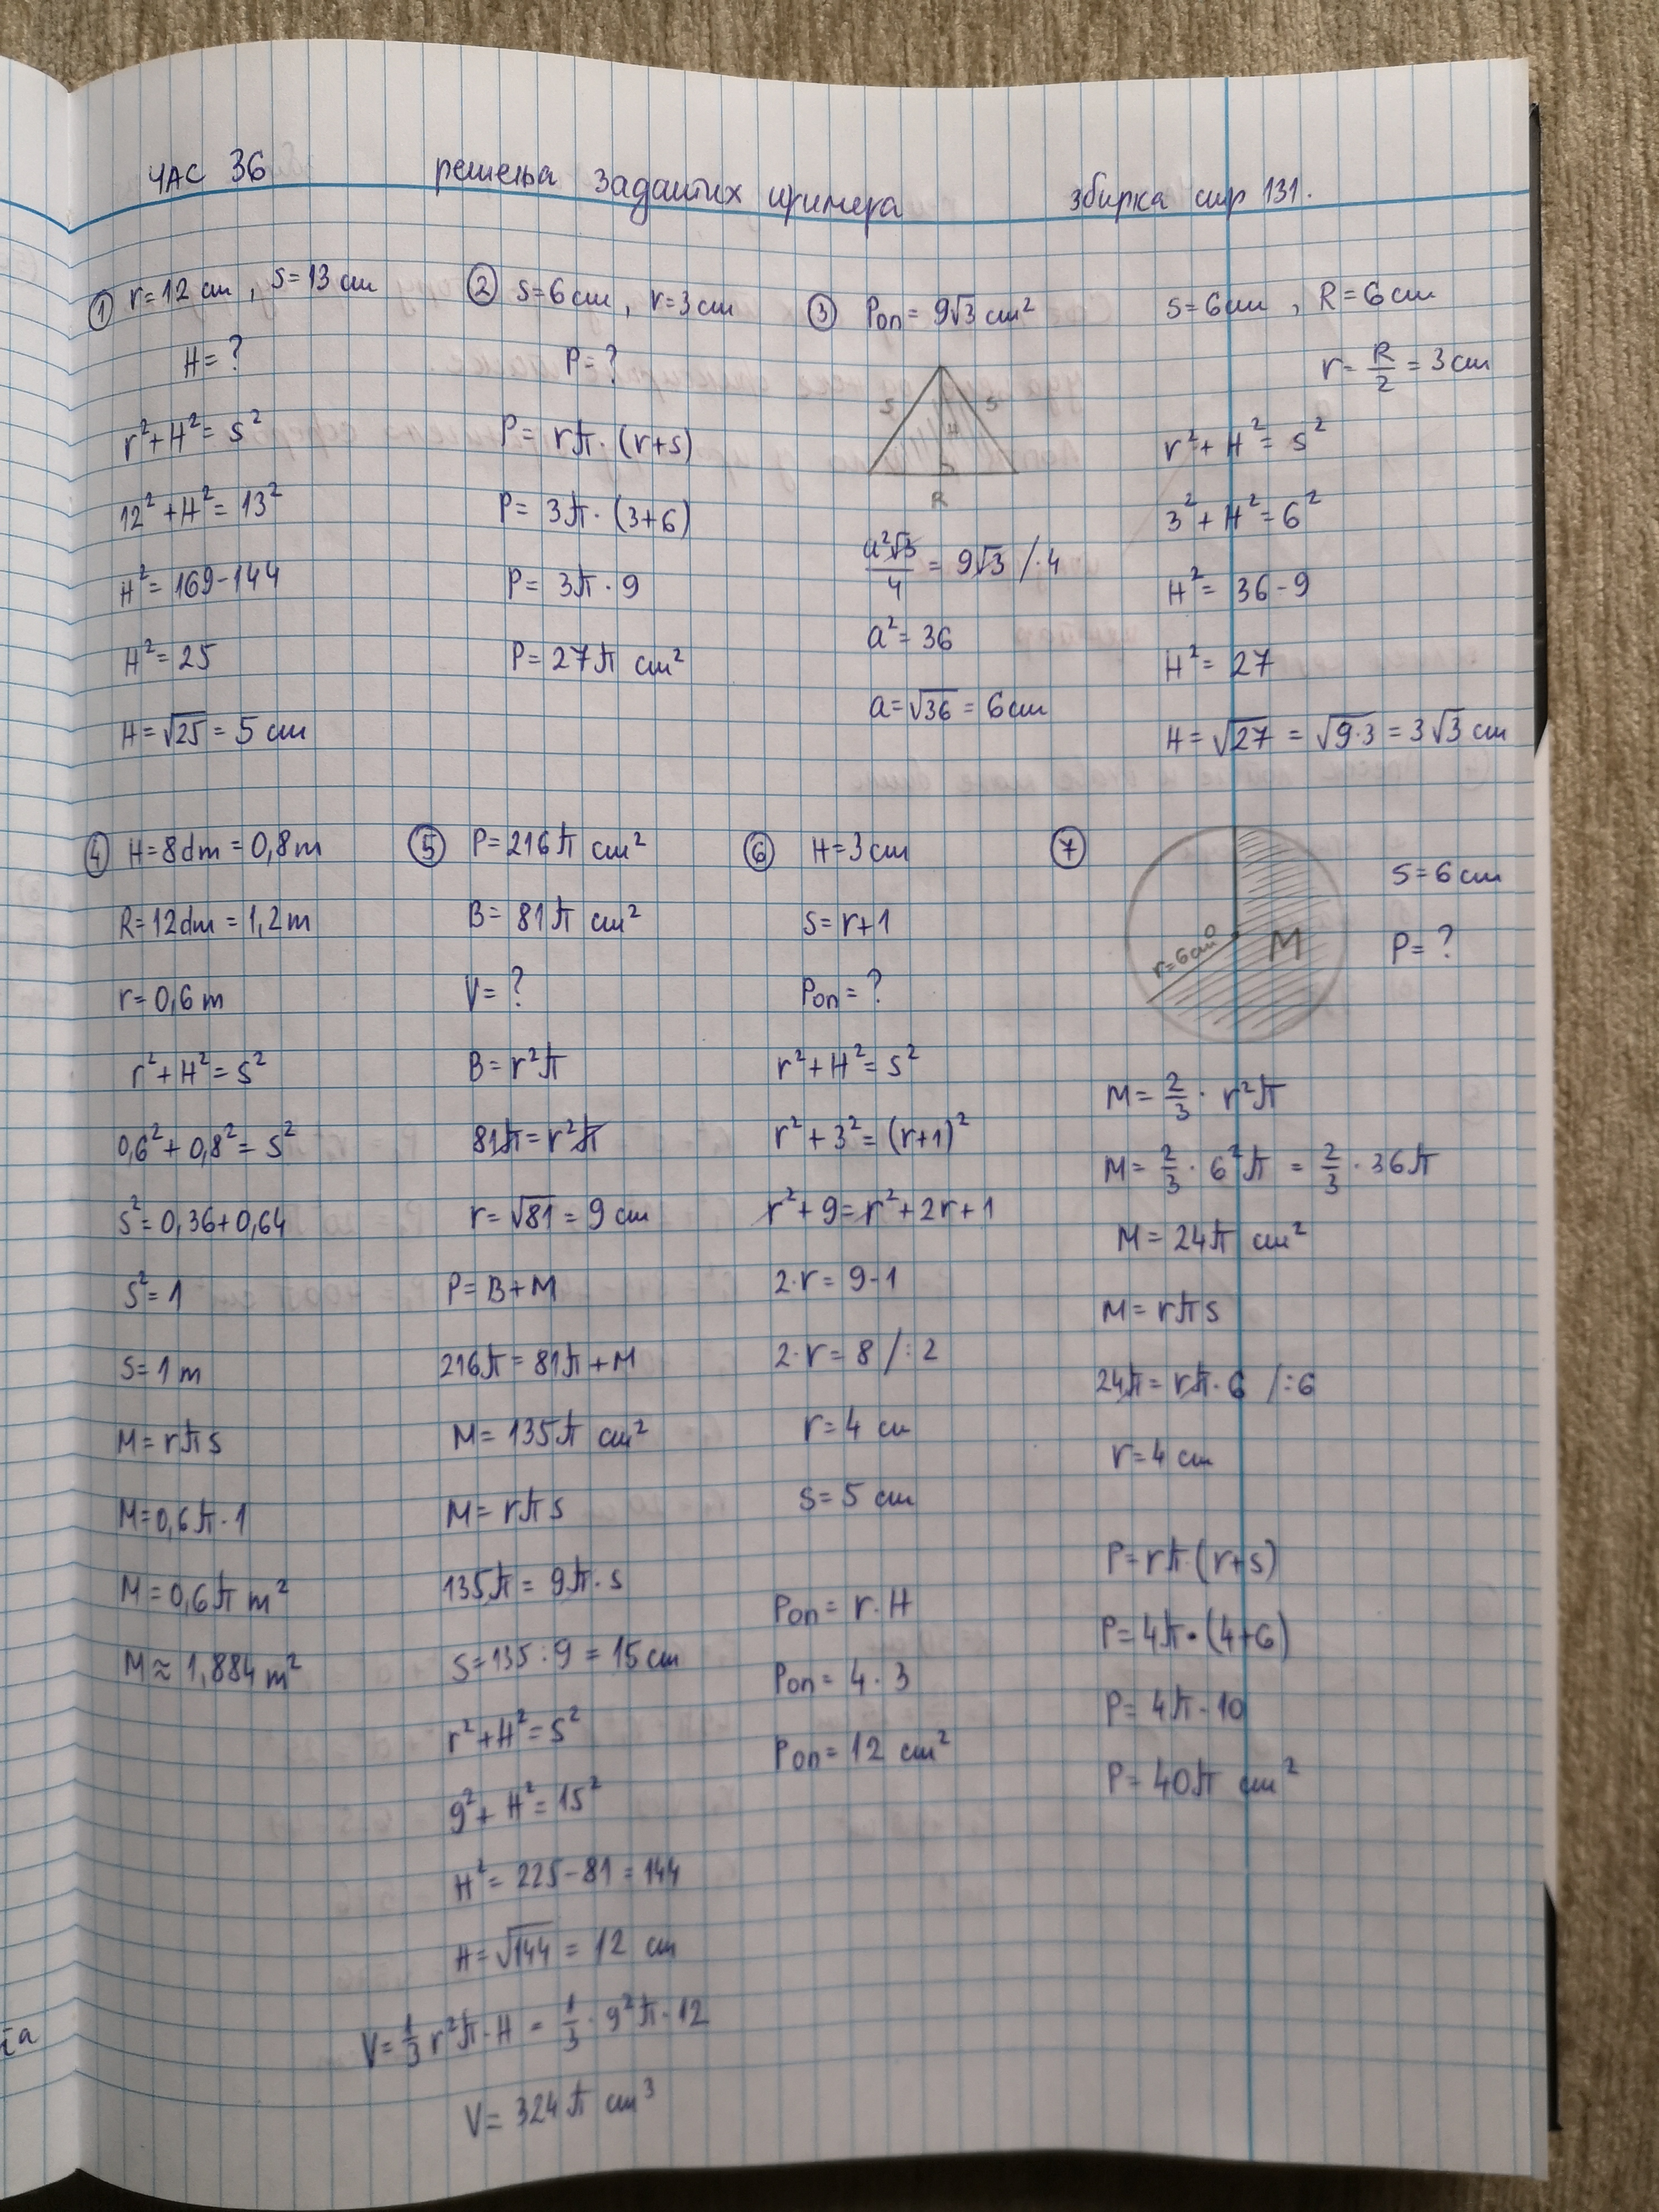 ЧАС 36 решења задатих примера збирка стр 131.
① r=12 cm, s=13 cm
H=?
r²+H²=s²
12²+H²=13²
H²=169-144
H²=25
H=√25=5 cm
② s=6 cm, r=3 cm
P=?
P=rπ·(r+s)
P=3π·(3+6)
P=3π·9
P=27π cm²
③ Pоп=9√3 cm²
s s
H
R
a²√3/4 = 9√3 /·4
a²=36
a=√36=6 cm
s=6 cm, R=6 cm
r=R/2=3 cm
r²+H²=s²
3²+H²=6²
H²=36-9
H²=27
H=√27=√9·3=3√3 cm
④ H=8dm=0,8m
R=12dm=1,2m
r=0,6m
r²+H²=s²
0,6²+0,8²=s²
s²=0,36+0,64
s²=1
s=1m
M=rπs
M=0,6π·1
M=0,6π m²
M≈1,884 m²
⑤ P=216π cm²
B=81π cm²
V=?
B=r²π
81π=r²π
r=√81=9 cm
P=B+M
216π=81π+M
M=135π cm²
M=rπs
135π=9π·s
s=135:9=15 cm
r²+H²=s²
9²+H²=15²
H²=225-81=144
H=√144=12 cm
V=1/3 r²π·H = 1/3·9²π·12
V=324π cm³
⑥ H=3 cm
s=r+1
Pоп=?
r²+H²=s²
r²+3²=(r+1)²
r²+9=r²+2r+1
2·r=9-1
2·r=8 /:2
r=4 cm
s=5 cm
Pоп=r·H
Pоп=4·3
Pоп=12 cm²
⑦ s=6 cm
P=?
r=6cm
M
M=2/3·r²π
M=2/3·6²π=2/3·36π
M=24π cm²
M=rπs
24π=rπ·6 /:6
r=4 cm
P=rπ·(r+s)
P=4π·(4+6)
P=4π·10
P=40π cm²